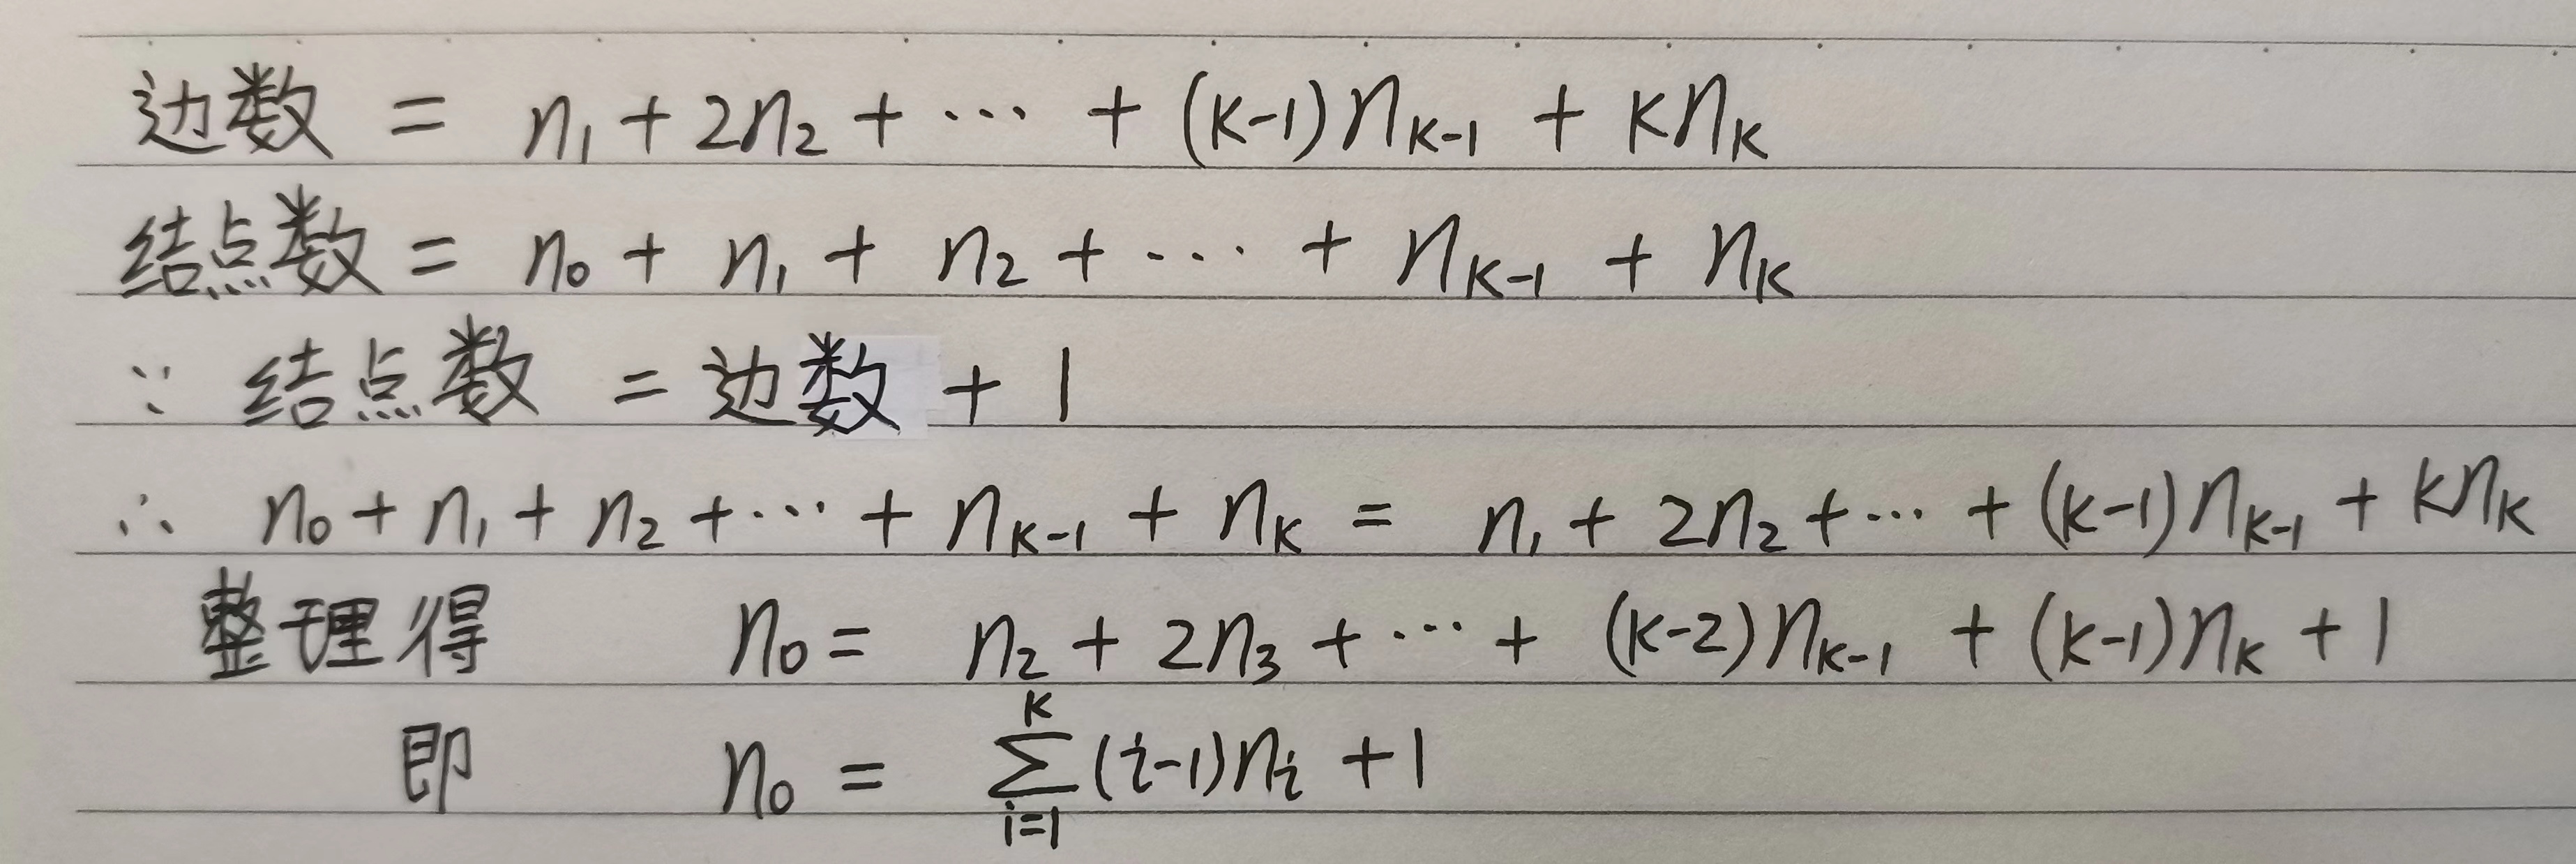 边数 = n₁ + 2n₂ + ··· + (k-1)nₖ₋₁ + knₖ
结点数 = n₀ + n₁ + n₂ + ··· + nₖ₋₁ + nₖ
∵ 结点数 = 边数 + 1
∴ n₀ + n₁ + n₂ + ··· + nₖ₋₁ + nₖ = n₁ + 2n₂ + ··· + (k-1)nₖ₋₁ + knₖ
整理得 n₀ = n₂ + 2n₃ + ··· + (k-2)nₖ₋₁ + (k-1)nₖ + 1
即 n₀ = ∑_{i=1}^{k} (i-1)nᵢ + 1